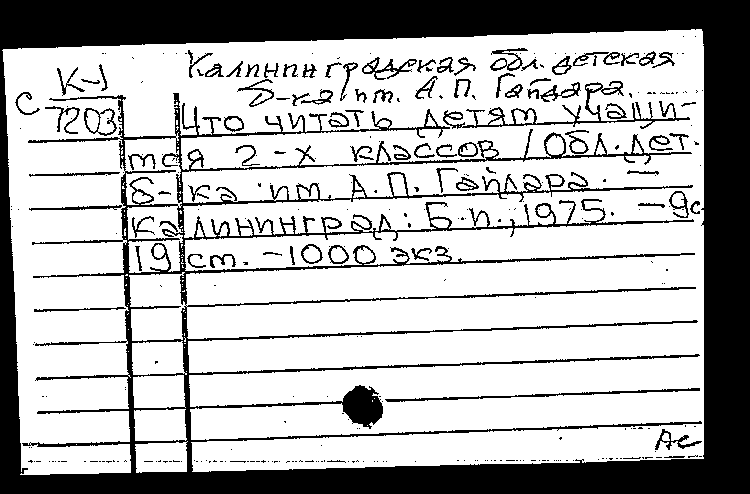 Калининградская обл. детская
б-ка им. А.П. Гайдара.
К-1
С 7203
Что читать детям учащи-
мся 2-х классов / Обл. дет.
б-ка им. А.П. Гайдара. —
Калининград: Б.и., 1975. — 9с
19 см. — 1000 экз.
Ас